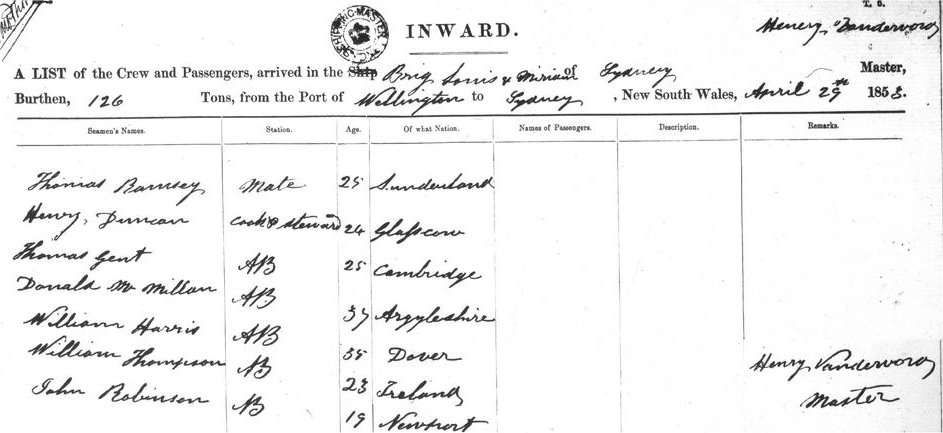 T. O.
Henry Vandervord
SHIPPING MASTER
INWARD.
A LIST of the Crew and Passengers, arrived in the Ship Brig Louis & Miriam of Sydney Master,
Burthen, 126 Tons, from the Port of Wellington to Sydney, New South Wales, April 29th 1858.
Seamen's Names. Station. Age. Of what Nation. Names of Passengers. Description. Remarks.
Thomas Ramsey Mate 25 Sunderland
Henry Duncan Cook & Steward 24 Glasscow
Thomas Gent AB 25 Cambridge
Donald Mc Millan AB 37 Argyleshire
William Harris AB 35 Dover
William Thompson AB 23 Ireland
John Robinson AB 19 Newport
Henry Vandervord
Master